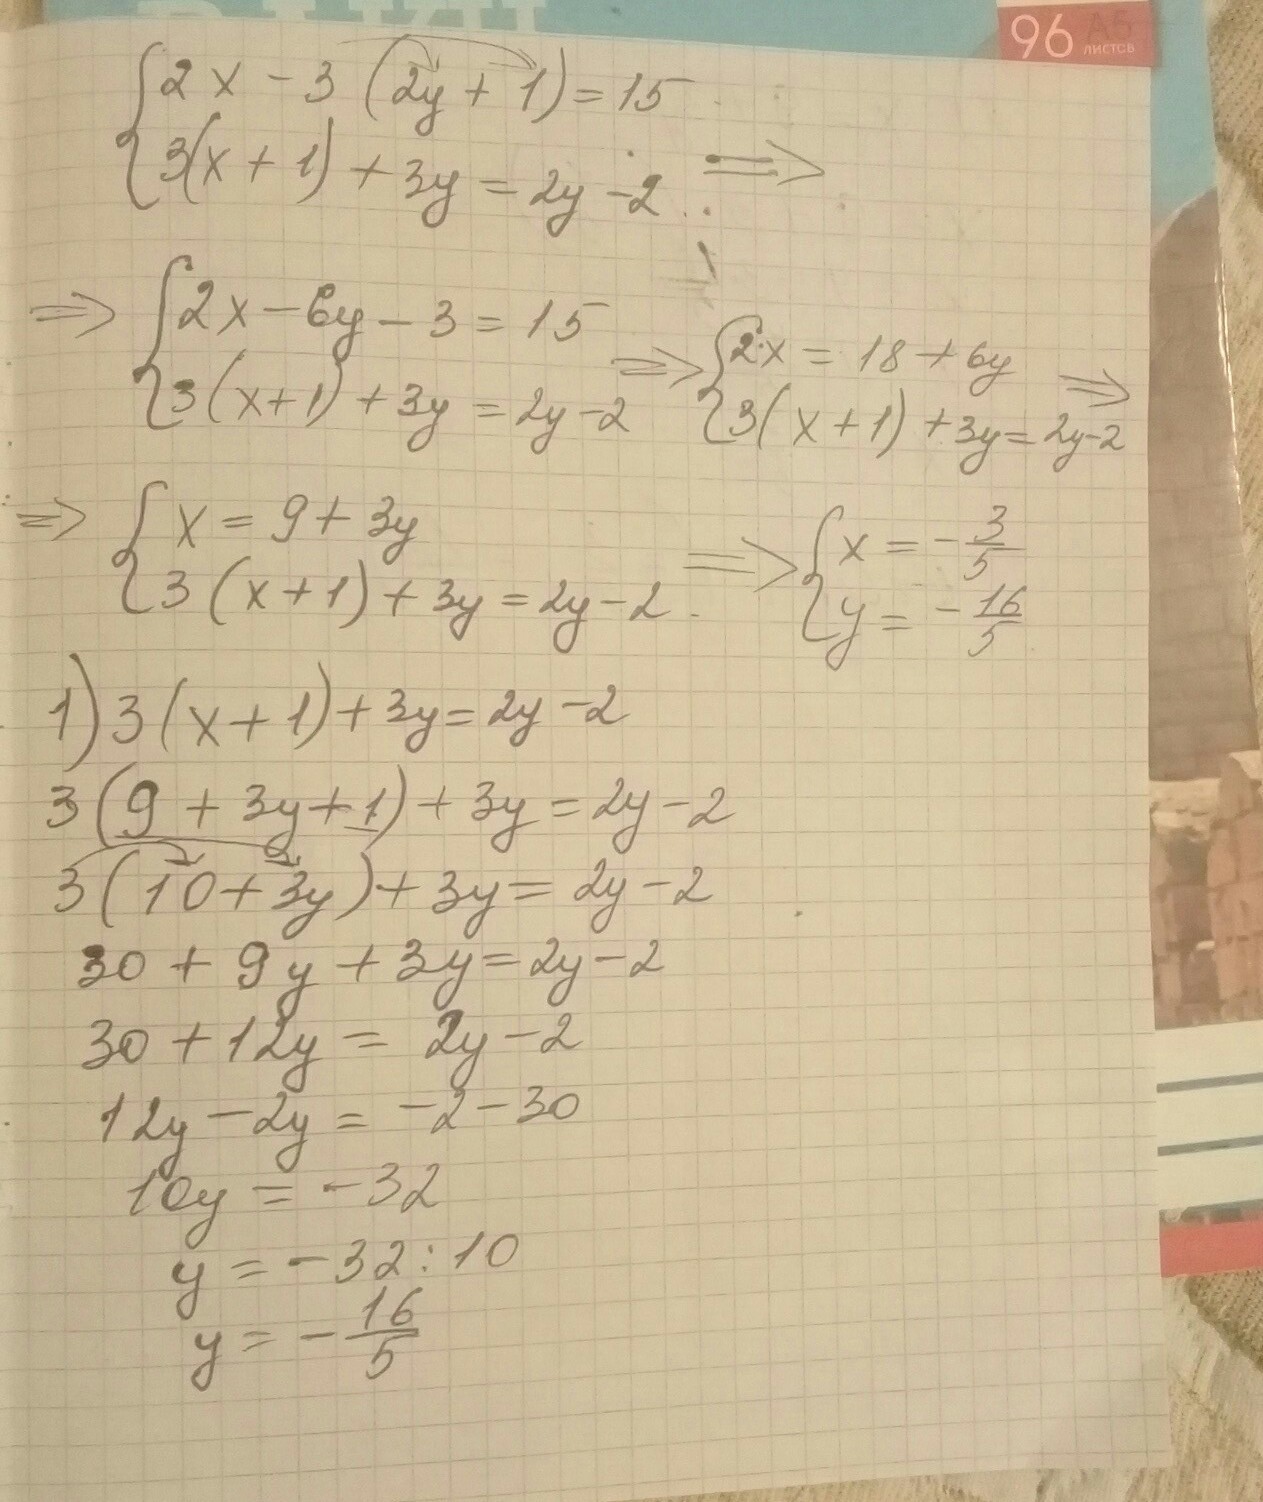 96 A5
листов
2x - 3 (2y + 1) = 15
3(x + 1) + 3y = 2y - 2 ⇒
⇒ 2x - 6y - 3 = 15
3(x+1) + 3y = 2y - 2
⇒ 2x = 18 + 6y
3(x+1) + 3y = 2y - 2 ⇒
⇒ x = 9 + 3y
3(x+1) + 3y = 2y - 2
⇒ x = - 3/5
y = - 16/5
1) 3(x+1) + 3y = 2y - 2
3(9 + 3y + 1) + 3y = 2y - 2
3(10 + 3y) + 3y = 2y - 2
30 + 9y + 3y = 2y - 2
30 + 12y = 2y - 2
12y - 2y = -2 - 30
10y = -32
y = -32 : 10
y = - 16/5